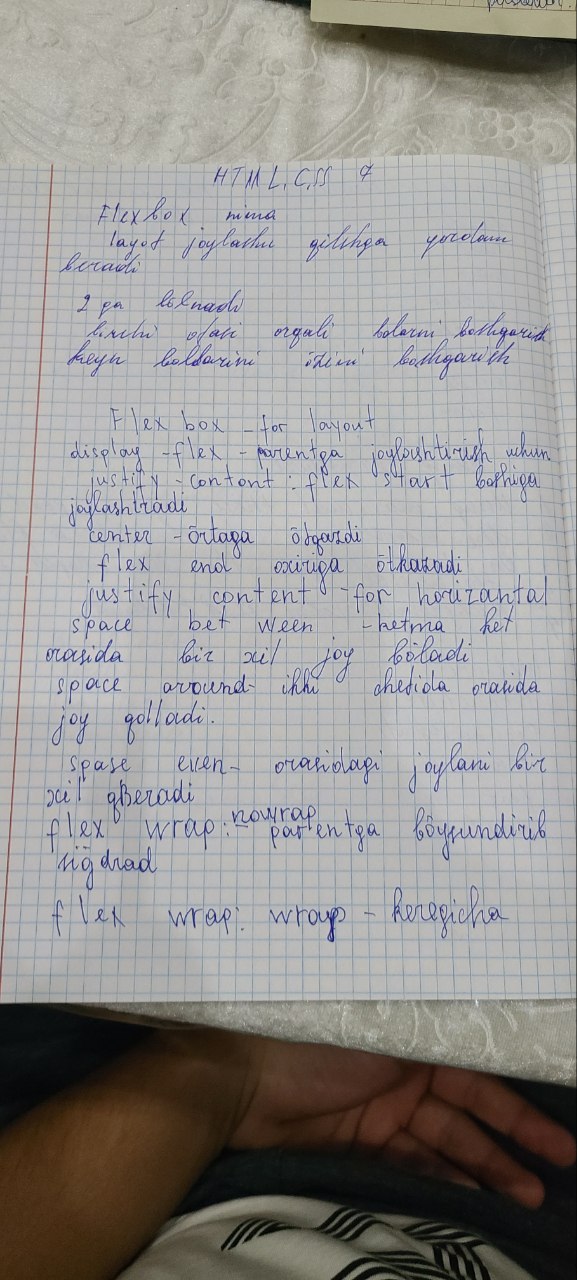 HTML, CSS 7
Flexbox nima
layot joylashu qilishga yordam
beradi
2 ga bölnadi
birnchi otasi orqali bolarni boshqarish
keyn bolalarini özini boshqarish
Flex box - for layout
display - flex - parentga joylashtirish uchun
justify - content : flex start boshiga
joylashtradi
center - örtaga ötqazdi
flex end oxiriga ötkazadi
justify content - for horizantal
space bet ween - ketma ket
orasida bir xil joy böladi
space around - ikki chetida orasida
joy qolladi.
spase even - orasidagi joylani bir
xil qberadi
flex wrap: nowrap - parentga böysundirib
siğdrad
flex wrap: wrap - keregicha